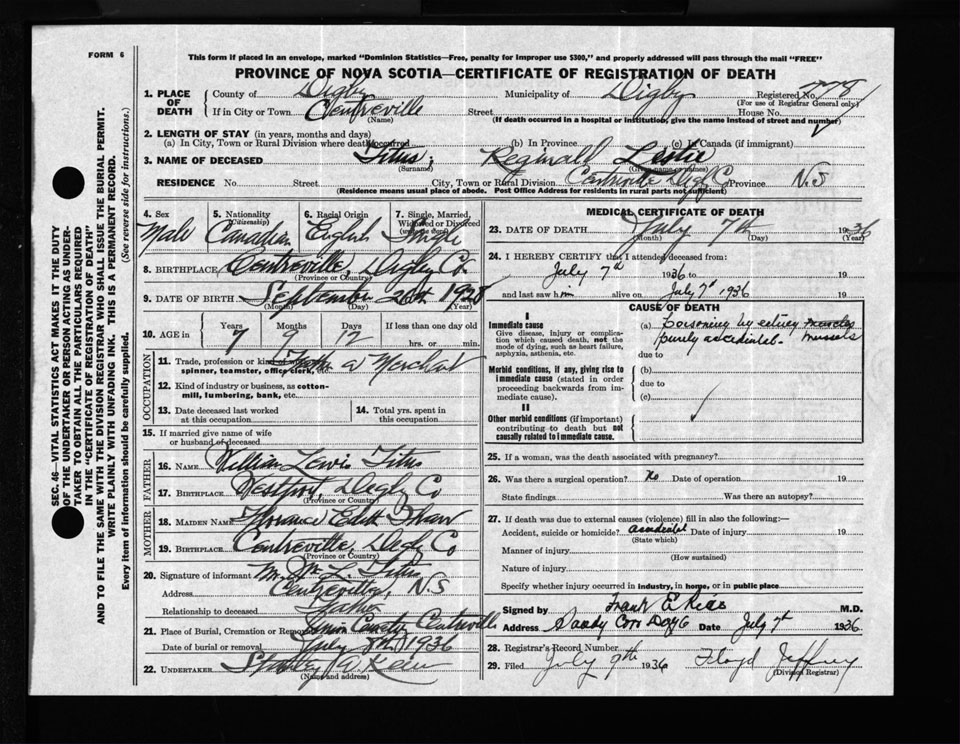 FORM 6
This form if placed in an envelope, marked "Dominion Statistics—Free, penalty for improper use $300," and properly addressed will pass through the mail "FREE"
PROVINCE OF NOVA SCOTIA—CERTIFICATE OF REGISTRATION OF DEATH
1. PLACE OF DEATH
County of Digby Municipality of Digby Registered No. 778
(For use of Registrar General only)
If in City or Town Centreville Street House No.
(Name) (If death occurred in a hospital or institution, give the name instead of street and number)
2. LENGTH OF STAY (in years, months and days)
(a) In City, Town or Rural Division where death occurred (b) In Province (c) In Canada (if immigrant)
3. NAME OF DECEASED Titus, Reginald Leslie
(Surname) (Given name/names)
RESIDENCE No. Street City, Town or Rural Division Centreville Digby Co Province N.S
(Residence means usual place of abode. Post Office Address for residents in rural parts not sufficient)
4. Sex Male
5. Nationality (Citizenship) Canadian
6. Racial Origin English
7. Single, Married, Widowed or Divorced Single
8. BIRTHPLACE Centreville, Digby Co.
(Province or Country)
9. DATE OF BIRTH September 26th 1928
(Month) (Day) (Year)
10. AGE in Years Months Days If less than one day old
7 9 12 hrs. or min.
OCCUPATION
11. Trade, profession or kind of work as spinner, teamster, office clerk, etc. a Merchant
12. Kind of industry or business, as cotton-mill, lumbering, bank, etc.
13. Date deceased last worked at this occupation
14. Total yrs. spent in this occupation
15. If married give name of wife or husband of deceased
FATHER
16. NAME William Lewis Titus
17. BIRTHPLACE Westport, Digby Co
(Province or Country)
MOTHER
18. MAIDEN NAME Florance Edith Thaw
19. BIRTHPLACE Centreville Digby Co
(Province or Country)
20. Signature of informant Mr. W. L. Titus
Address Centreville, N.S
Relationship to deceased Father
21. Place of Burial, Cremation or Removal Union Cemetry Centreville
Date of burial or removal July 8th 1936
22. UNDERTAKER Stanley W.
(Name and address)
MEDICAL CERTIFICATE OF DEATH
23. DATE OF DEATH July 7th 1936
(Month) (Day) (Year)
24. I HEREBY CERTIFY that I attended deceased from:
July 7th 1936 to 19
and last saw him alive on July 7th 1936 19
CAUSE OF DEATH
I
Immediate cause
Give disease, injury or complication which caused death, not the mode of dying, such as heart failure, asphyxia, asthenia, etc.
(a) Poisoning by eating muscles mussels
purely accidental.
due to
Morbid conditions, if any, giving rise to immediate cause (stated in order proceeding backwards from immediate cause).
(b)
due to
(c)
II
Other morbid conditions (if important) contributing to death but not causally related to immediate cause.
25. If a woman, was the death associated with pregnancy?
26. Was there a surgical operation? No Date of operation 19
State findings Was there an autopsy?
27. If death was due to external causes (violence) fill in also the following:—
Accident, suicide or homicide? accidental Date of injury 19
(State which)
Manner of injury
(How sustained)
Nature of injury
Specify whether injury occurred in industry, in home, or in public place
Signed by Frank E. Rice M.D.
Address Sandy Cove Digby Date July 7th 1936
28. Registrar's Record Number
29. Filed July 9th 1936 Floyd Jeffrey
(Division Registrar)
SEC. 46—VITAL STATISTICS ACT MAKES IT THE DUTY
OF THE UNDERTAKER OR PERSON ACTING AS UNDER-
TAKER TO OBTAIN ALL THE PARTICULARS REQUIRED
IN THE "CERTIFICATE OF REGISTRATION OF DEATH"
AND TO FILE THE SAME WITH THE DIVISION REGISTRAR WHO SHALL ISSUE THE BURIAL PERMIT.
WRITE PLAINLY WITH UNFADING INK. THIS IS A PERMANENT RECORD.
Every item of information should be carefully supplied. (See reverse side for instructions.)